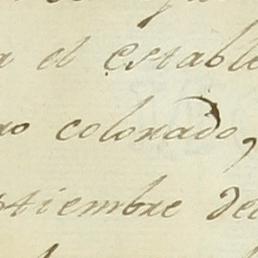 a el estable
no colorado,
ptiembre de